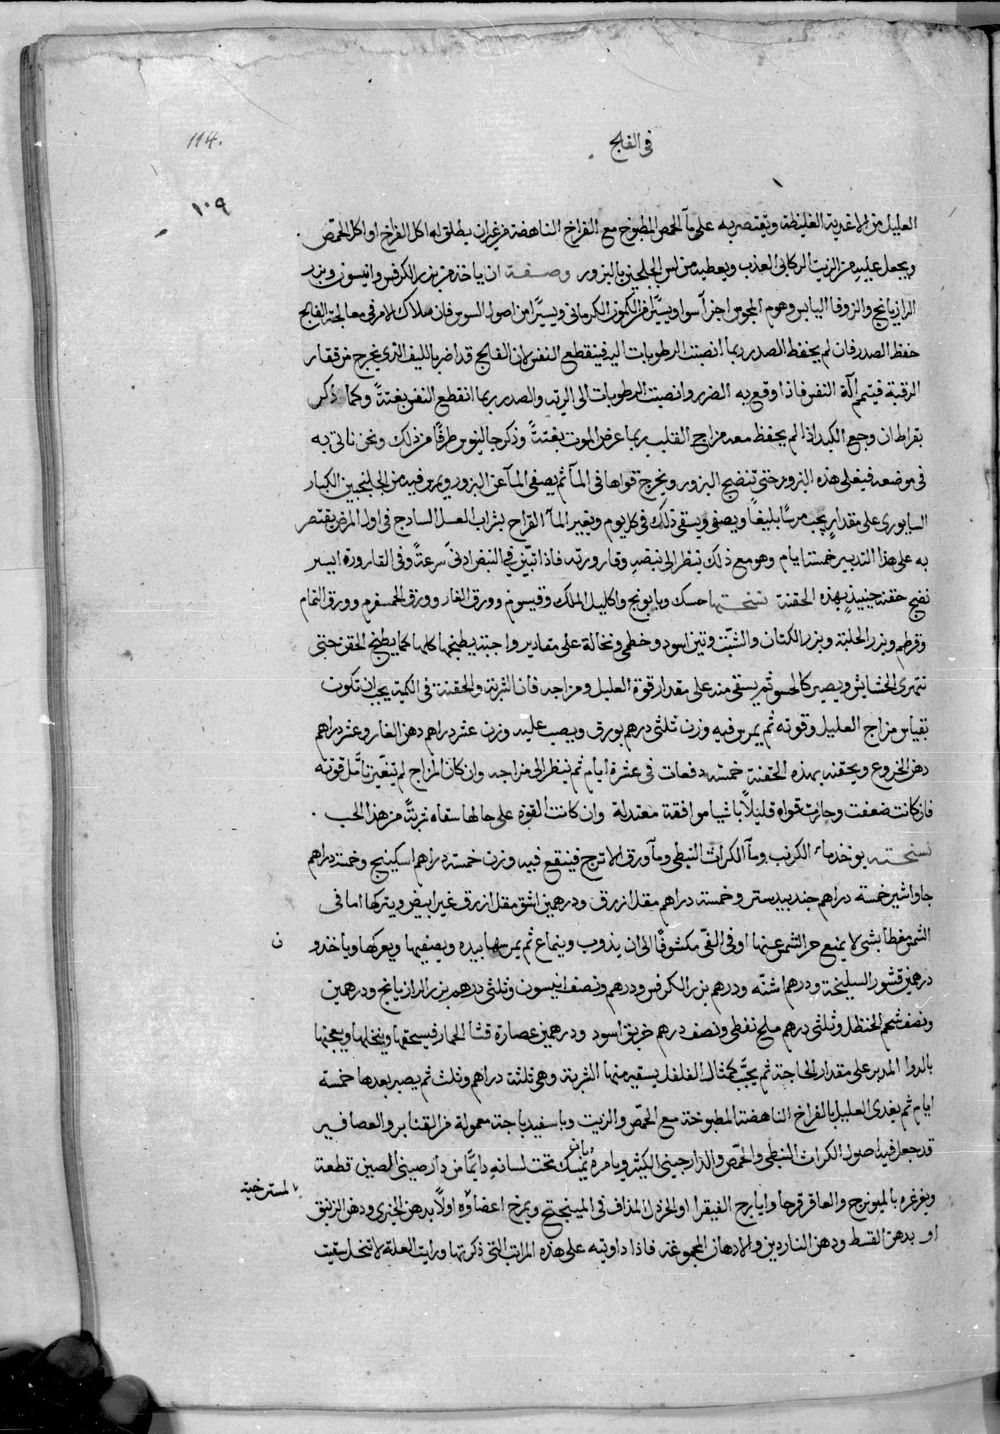 114.
في الفالج
١٠٩
العليل من الاغذية الغليظة ويقتصر به على ماء الحمص المطبوخ مع الفراخ الناهضة من غير ان يطلق له اكل الفراخ او اكل الحمص
ويجعل عليه من الزيت الركابي العذب ويعطيه من الجلنجبين بالبزور وصفته ان ياخذ من بزر الكرفس وانيسون وبزر
الرازيانج والزوفا اليابس وهوم المجوس اجزآ سوا ويسيرا من الكمون الكرماني ويسيرا من اصول السوس فان ملاك الامر في معالجة الفالج
حفظ الصدر فان لم يحفظ الصدر ربما انصبت الرطوبات اليه فينقطع النفس لان الفالج قد اضر بالليف الذي يخرج من فقار
الرقبة فيتمم آلة النفس فاذا وقع به الضرر وانصبت الرطوبات الى الرئه والصدر ربما انقطع النفس بغتةً وكما ذكر
بقراط ان وجع الكبد اذا لم يحفظ معه مزاج القلب ربما عرض الموت بغتةً وذكر جالينوس طرفًا من ذلك ونحن ناتي به
في موضعه فيغلى هذه البزور حتى تنضج البزور ويخرج قواها في المآ ثم يصفى المآ عن البزور ويمرس فيه من الجلنجبين الكبار
السابوري على مقدار يجب مرسًا بليغًا ويصفى ويسقى ذلك في كل يوم ويغير المآ القراح بشراب العسل الساذج في اول المرض يقتصر
به على هذا التدبير خمسة ايام وهو مع ذلك ينظر الى نبضه وقارورته فاذا تبيّن في النبض ادنى سرعةً وفي القارورة ايسر
نضج حقنه حينيذ بهذه الحقنة نسختها حسك وبابونج واكليل الملك وقيسوم وورق الغار وورق المسفرم وورق النمام
وقرطم وبزر الحلبة وبزر الكتان والشبت وتين اسود وخطمي ونخالة على مقادير واجبة يطبخها كلها كما يطبخ الحقن حتى
تتهرى الحشايش ويصير كالحسو ثم يسقى منه على مقدار قوة العليل ومزاجه فان الشربة والحقنة في الكمية يجب ان تكون
بقياس مزاج العليل وقوته ثم يمرس فيه وزن ثلثي درهم بورق ويصب عليه وزن عشر دراهم دهن الغار وعشر دراهم
دهن الخروع ويحقنه بهذه الحقنة خمسة دفعات في عشرة ايام ثم ينظر الى مزاجه وان كان المزاج لم يتغيّر تأمّل قوته
فان كانت ضعفت وخارت قواه قليلًا باشيا موافقة معتدلة وان كانت القوة على حالها سقاه شربةً من هذا الحب
نسخته يوخذ ماء الكرنب ومآ الكراث النبطي ومآ ورق الاترج فينقع فيه وزن خمسة دراهم اسكبينج وخمسة دراهم
جاواشير خمسة دراهم جندبيدستر وخمسة دراهم مقل ازرق ودرهمين اشق مقل ازرق غير ابيض ويتركها اما في
الشمس مغطا بشى لا يمنع حر الشمس عنها او في الفى مكشوفًا الى ان يذوب وينماع ثم يمرسها بيده ويصفيها ويعركها وياخذ و
ن
درهمين قشور السليخة ودرهم اشنه ودرهم بزر الكرفس ودرهم ونصف انيسون وثلثي درهم بزر الرازيانج ودرهمين
ونصف شحم الحنظل وثلثي درهم ملح نفطي ونصف درهم خربق اسود ودرهمين عصارة قثا الحمار فيسحقها وينخلها ويعجنها
بالدوا المدبر على مقدار الحاجة ثم يحبّب كمثال الفلفل يسقيه منها الشربة وهي ثلثة دراهم وثلث ثم يصبر بعدها خمسة
ايام ثم يغدى العليل بالفراخ الناهضة المطبوخة مع الحمّص والزيت وباسفيدباجة معمولة من القنابر والعصافير
قد جعل فيها اصول الكراث النبطي والحمّص والدارجيني الكثير ويامره بان يمسك تحت لسانه دايمًا من دارصيني الصين قطعة
ويغرغره بالميويزج والعاقرقرحا وايارج الفيقرا او الخردل المذاف في الميبختج ويمرخ اعضاؤه اولًا بدهن الخيري ودهن الزنبق
المسترخية
او بدهن القسط ودهن الناردين والادهان المجموعة فاذا داويته على هذه المراتب التي ذكرتها ورايت العلة لا تنحل سقيت